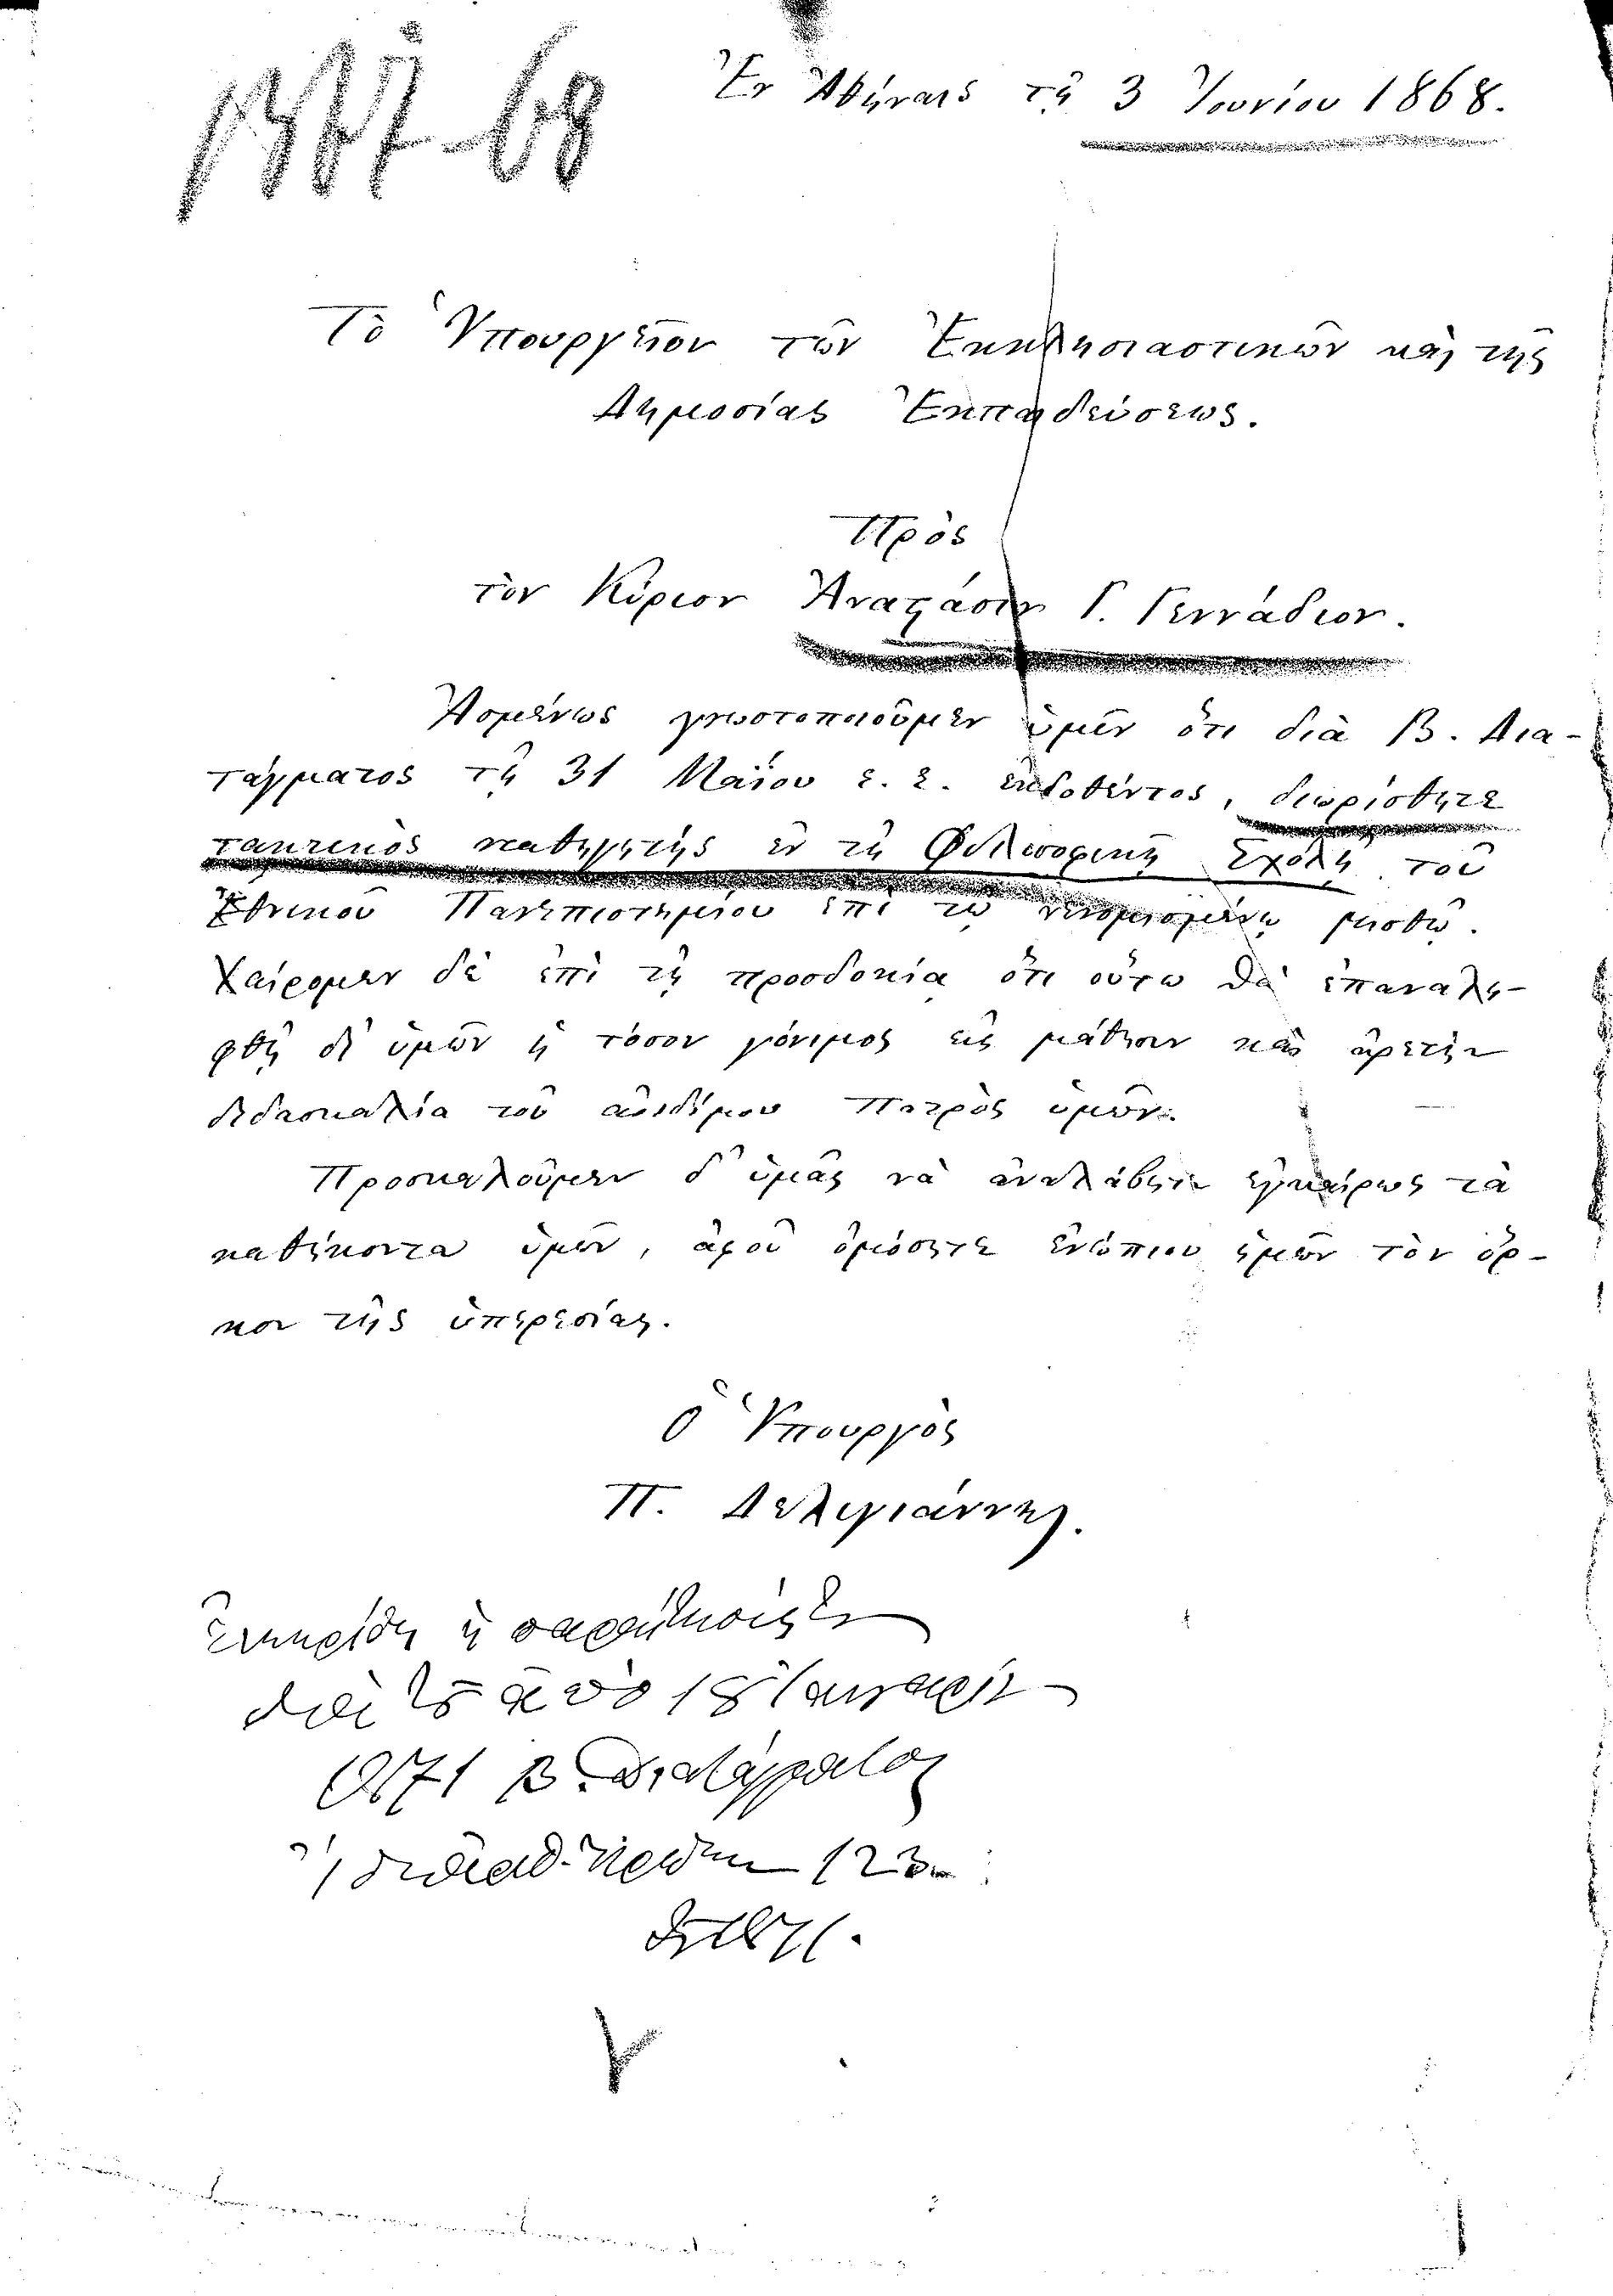 1867-68
Ἐν Ἀθήναις τῇ 3 Ἰουνίου 1868.
Τὸ Ὑπουργεῖον τῶν Ἐκκλησιαστικῶν καὶ τῆς
Δημοσίας Ἐκπαιδεύσεως.
Πρὸς
τὸν Κύριον Ἀναστάσιον Γ. Γεννάδιον.
Ἀσμένως γνωστοποιοῦμεν ὑμῖν ὅτι διὰ Β. Δια-
τάγματος τῇ 31 Μαΐου ἐ. ἔ. ἐκδοθέντος, διωρίσθητε
τακτικὸς καθηγητὴς ἐν τῇ Φιλοσοφικῇ Σχολῇ τοῦ
Ἐθνικοῦ Πανεπιστημείου ἐπὶ τῷ νενομισμένῳ μισθῷ.
Χαίρομεν δὲ ἐπὶ τῇ προσδοκίᾳ ὅτι οὕτω θὰ ἐπαναλη-
φθῇ δι' ὑμῶν ἡ τόσον γόνιμος εἰς μάθησιν καὶ ἀρετὴν
διδασκαλία τοῦ ἀοιδίμου Πατρὸς ὑμῶν.
Προσκαλοῦμεν δ' ὑμᾶς νὰ ἀναλάβητε ἐγκαίρως τὰ
καθήκοντα ὑμῶν, ἀφοῦ ὀμόσητε ἐνώπιον ἡμῶν τὸν ὅρ-
κον τῆς ὑπηρεσίας.
Ὁ Ὑπουργὸς
Π. Δεληγιάννης.
ἐνεκρίθη ἡ παραίτησις
διὰ τοῦ ἀπὸ 18 Ἰανουαρίου
1871 Β. Διατάγματος